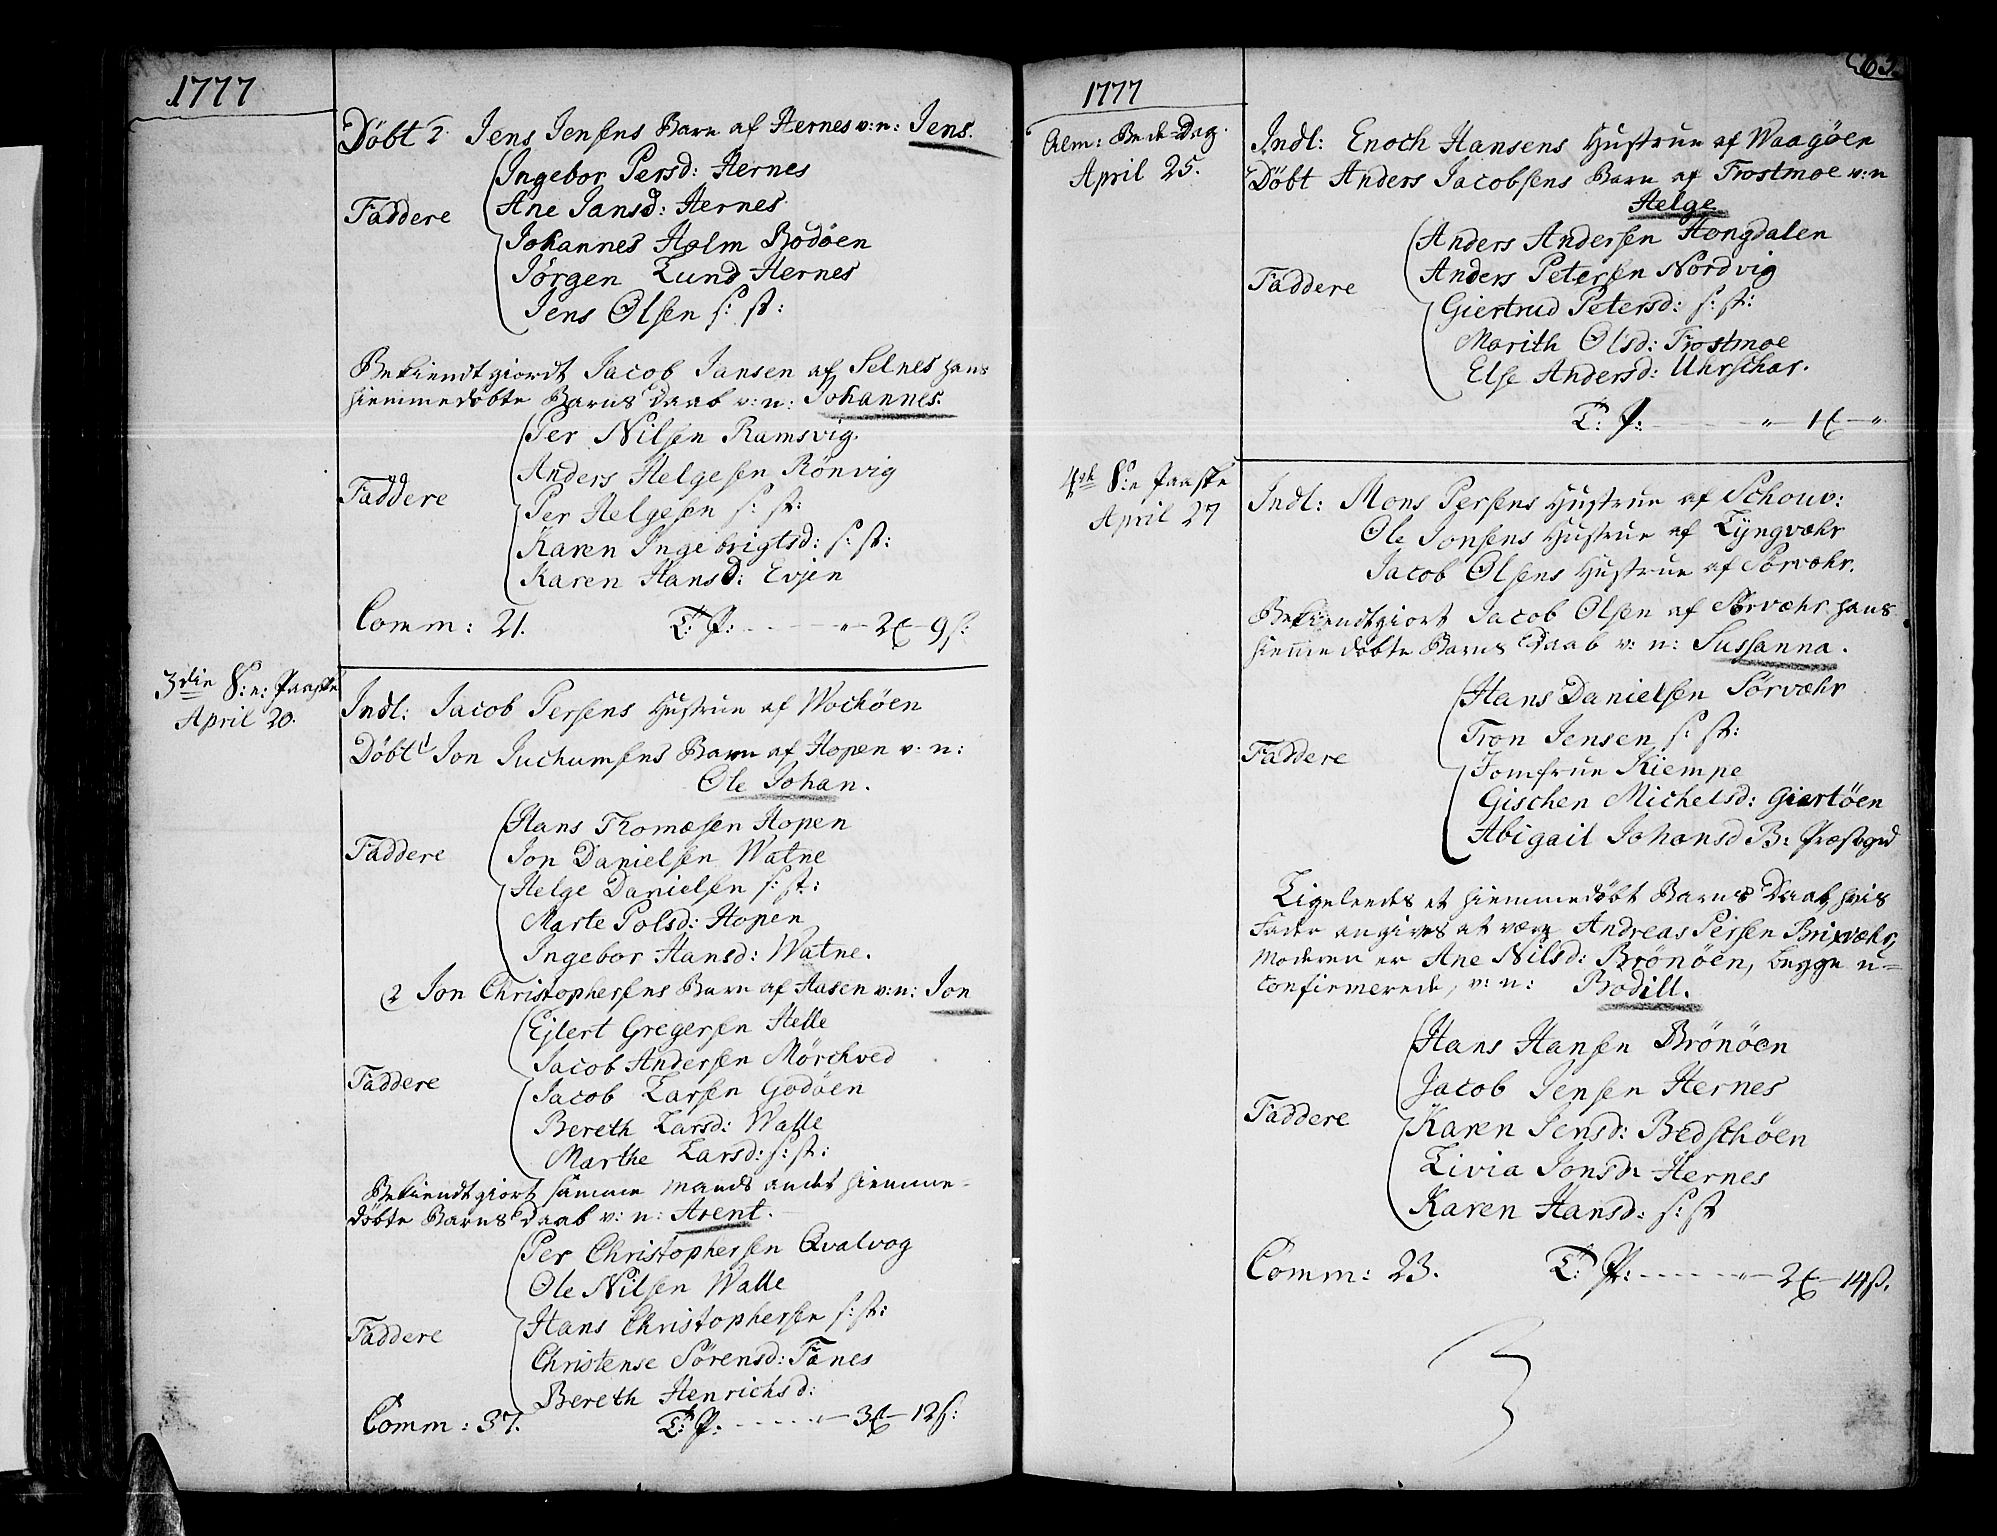 1777
Döbt 2 Jens Jensens Barn af Hernes v: n: Jens.
Ingebor Persd: Hernes
Ane Jansd: Hernes
Faddere
Johannes Holm Bodöen
Jörgen Lund Hernes
Jens Olsen s: st:
Bekiendtgiordt Jacob Jansen af Selnes hans
hiemmedöbte Barns Daab v: n: Johannes.
Per Nilsen Ramsvig.
Anders Helgesen Rönvig
Faddere
Per Helgesen s: st:
Karen Ingebrigtsd: s: st:
Karen Hansd: Evjen
Comm: 21. T: P: - - - - " - 2 - 9 s:
3die S: e: Paaske
April 20.
Indl: Jacob Persens Hustrue af Wochöen
Döbt 1 Jon Juchumsens Barn af Hopen v: n:
Ole Johan.
Hans Thomæsen Hopen
Faddere
Jon Danielsen Watne
Helge Danielsen s: st:
Marte Polsd: Hopen
Ingebor Hansd: Watne.
2 Jon Christophersens Barn af Aasen v: n: Jon
Ejlert Gregersen Helle
Jacob Andersen Mörchved
Faddere
Jacob Larsen Godöen
Bereth Larsd: Walle
Marthe Larsd: s: st:
Bekiendtgiort samme Mands andet hiemme-
döbte Barns Daab v: n: Arent.
Per Christophersen Qvalvog
Ole Nilsen Walle
Faddere
Hans Christophersen s: st:
Christense Sörensd: Fanes
Bereth Henrichsd:
Comm: 37. T: P: - - - - " - 3 - 12 s:
1777
65.
Alm: Bede-Dag.
April 25.
Indl: Enoch Hansens Hustrue af Waagöen
Döbt Anders Jacobsens Barn af Trostmoe v: n
Helge
Anders Andersen Hongdalen
Anders Petersen Nordvig
Faddere
Giertrud Petersd: s: st:
Marith Olsd: Trostmoe
Else Andersd: Uhrschar.
T: P: - - - - " - 1 - "
4de S: e Paaske
April 27
Indl: Mons Persens Hustrue af Schouv:
Ole Jonsens Hustrue af Lyngvæhr
Jacob Olsens Hustrue af Sörvæhr.
Bekiendtgiort Jacob Olsen af Sörvæhr hans
hiemmedöbte Barns Daab v: n: Sussanna.
Hans Danielsen Sörvæhr
Tron Jensen s: st:
Faddere
Jomfrue Kiempe
Gischen Michelsd: Giertöen
Abigail Johansd B: Præstgrd
Ligeleedes et hiemmedöbt Barns Daab, hvis
Fader angives at være Andreas Persen Brixvæhr,
Moderen er Ane Nilsd: Brönöen, begge u-
confirmerede, v: n: Bodill.
Hans Hansen Brönöen
Jacob Jensen Hernes
Faddere
Karen Jensd: Bedschöen
Livia Jonsd: Hernes
Karen Hansd: s: st
Comm: 23. T: P: - - - - " - 2 - 14 s.